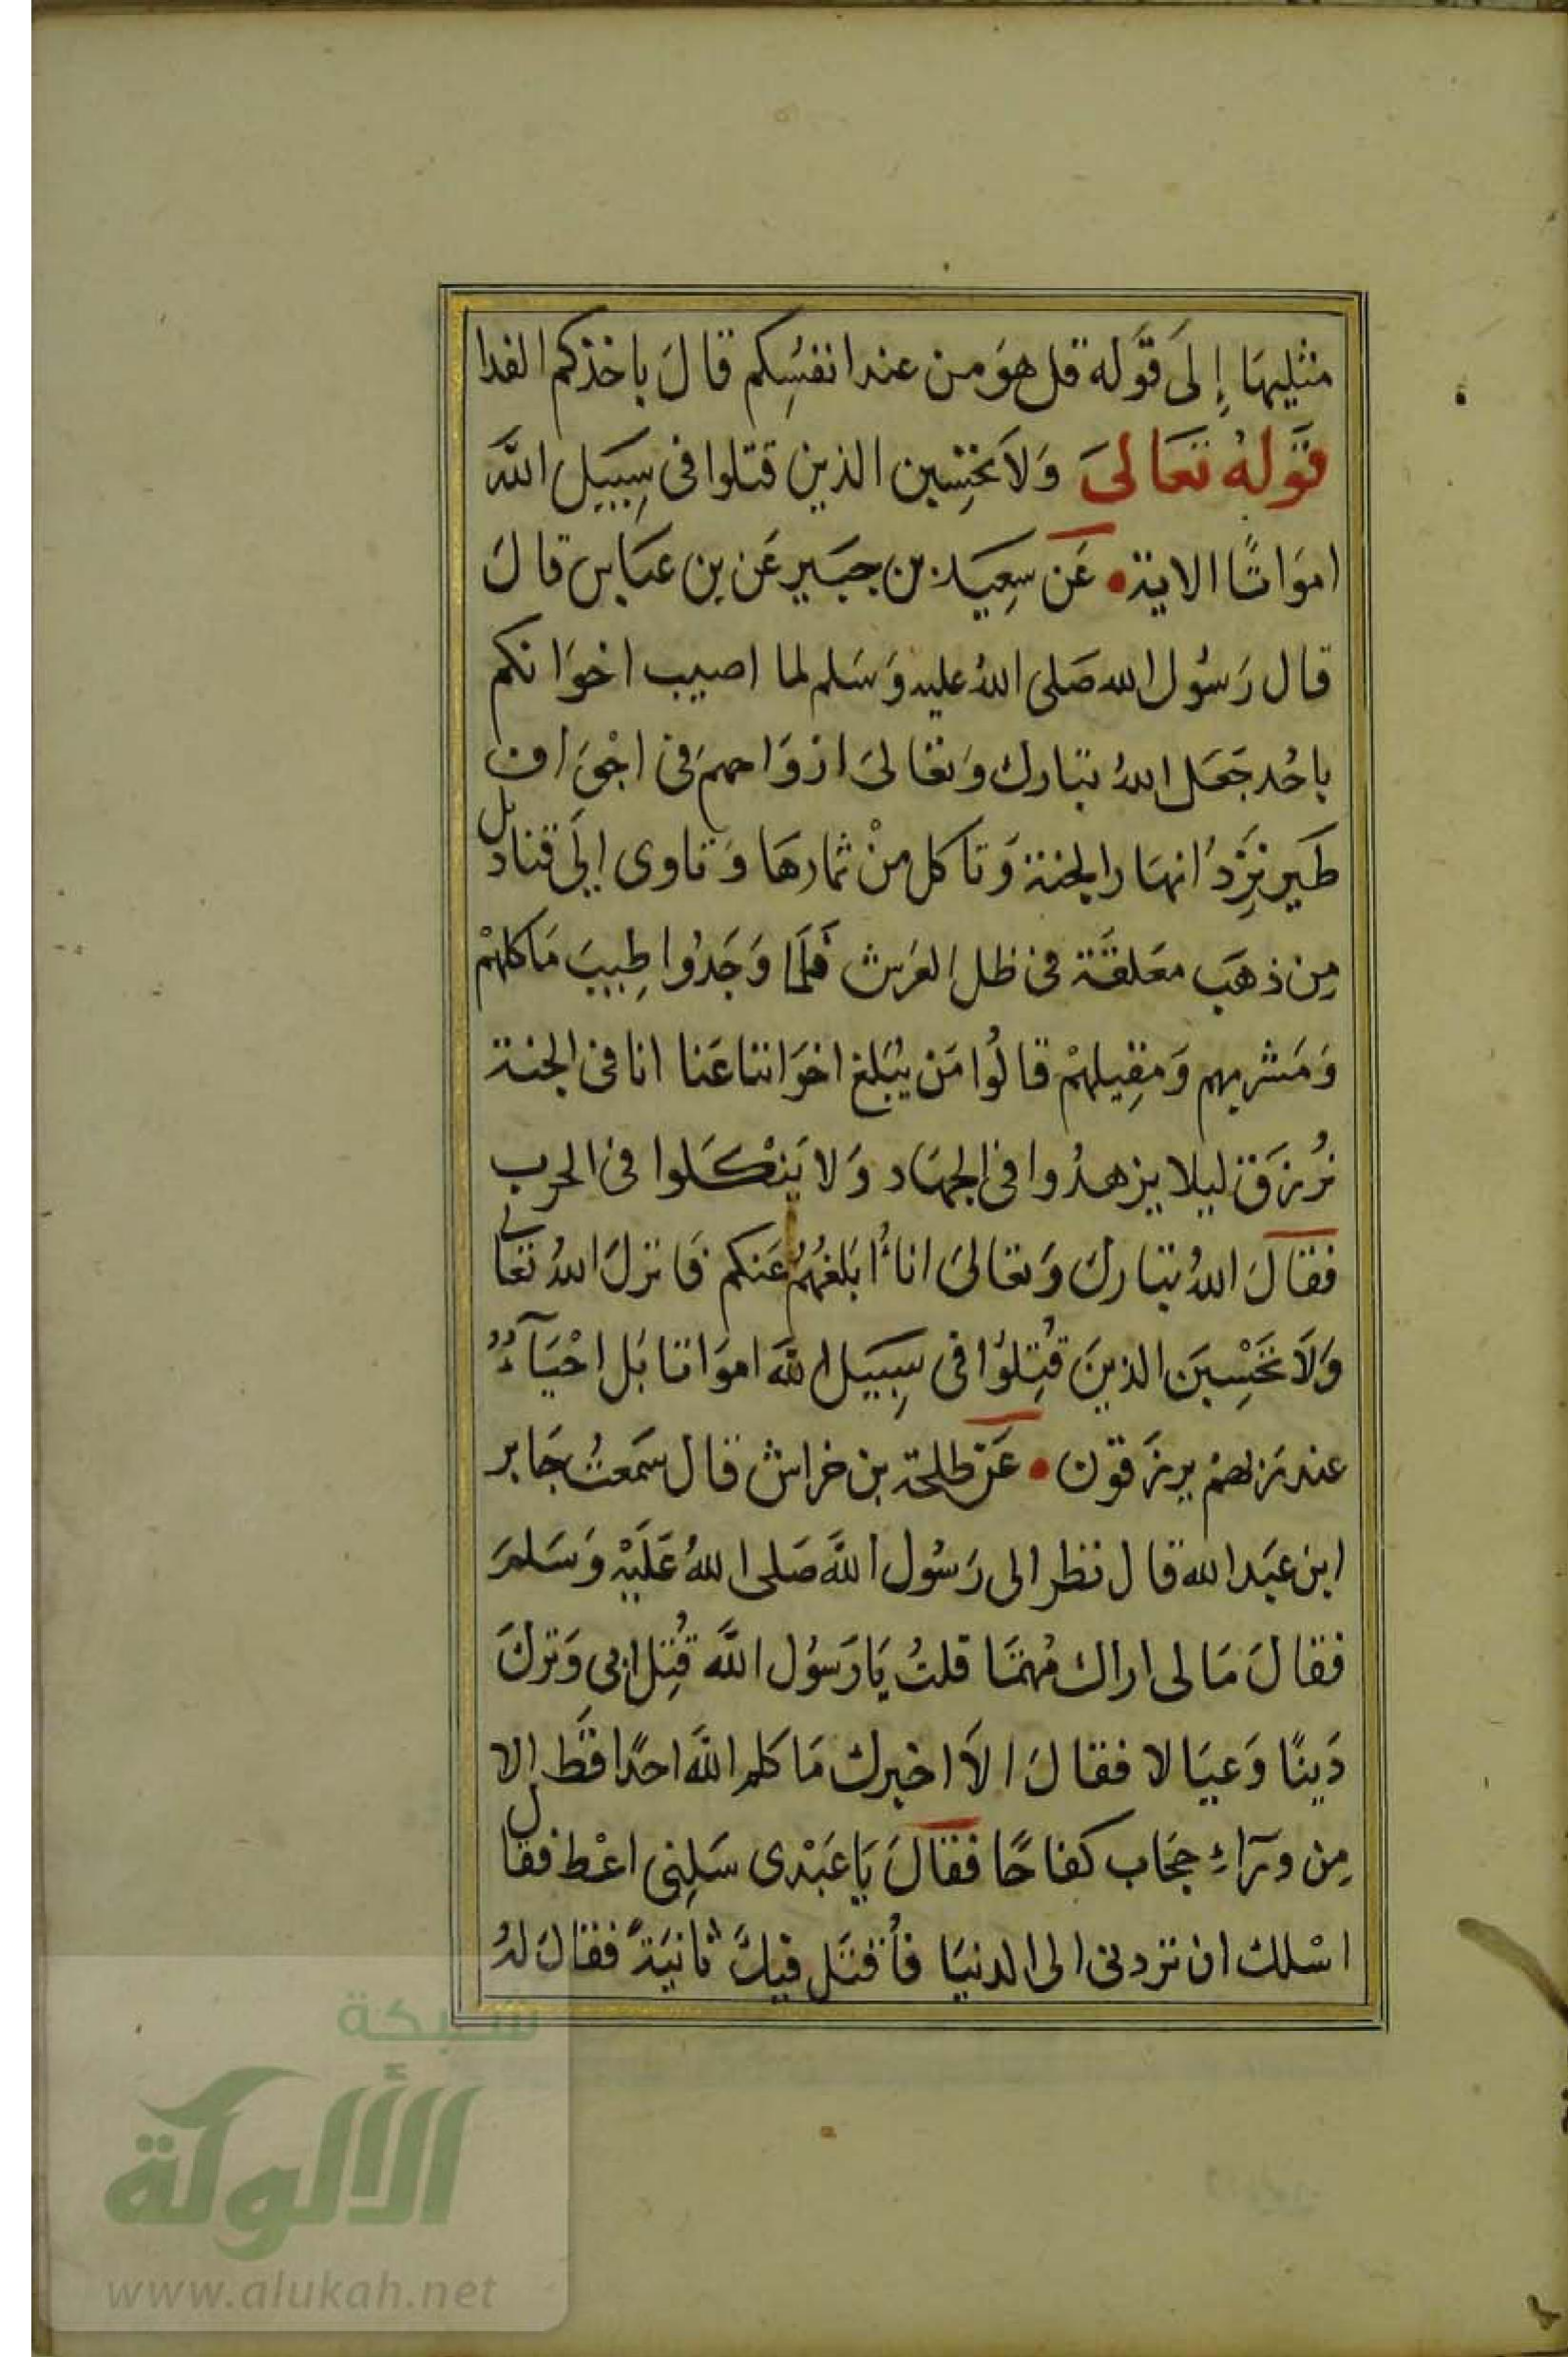 مثليها إِلَى قَوَله قل هوَ من عند انفسُِكم قالَ باخذكم الفدا
قَوله تعَالىَ وَلاَ تحسِبن الذين قتلوا فى سِبيَل اللَّه
اموَاتًا الاية عَن سِعيَد بن جبَير عَن بن عبَاس قالَ
قال رَسُول الله صَلى اللهُ عليه وَسَلم لما اصيب اخوَانكم
باحُد جَعَل اللهُ تبَارك وَتعَالىَ ارْوَاحهمَ فى اجْوَاف
طَير تَرِدُ انهَار الجنة وَتاكل منْ ثمارهَا وَتاوى الَى قناديل
مِن ذهَب معَلقَة فى ظل العَرش فَلَما وَجَدُوا طِيبَ مَاكلهمْ
وَمَشربهم وَمَقِيلهمْ قالُوا مَن يُبَلغ اخوَاننا عَنا انا فى الجنة
نُرزَق ليلا يزهدُوا فى الجهَاد وَلا يَنْكَلوا فى الحرب
فقالَ اللهُ تبَارك وَتعَالىَ اناُ اُبَلغهُمُ عَنكم فَانزلَ اللهُ تعَالى
وَلاَ تحَسْبَن الذينَ قُتِلوُا فى سِبيَل اللَّه اموَاتا بَل احْيَآءٌ
عند رَبهمُ يرزَقوَن عَن طلحة بن خراش قال سَمعتُ جَابر
ابن عبَد الله قال نظر الى رَسُول اللَّه صَلى اللهُ عَلَيْه وَسَلمَ
فقالَ مَا لى اراك مُهتمَا قلتُ يَا رَسوُل اللَّه قُتِل ابى وَتركَ
دَينًا وَعيَالا فقالَ الاَ اخبرك مَا كلم اللَّه احدًا قَط الا
مِن ورَآءِ حجَاب كفاحًا فقالَ يَا عَبْدى سَلِنى اعْط فقال
اسْلك ان تردنى الى الدنيَا فأُقتَل فيكَ ثانيَةً فقالَ لهُ
شبكة
الألوكة
www.alukah.net